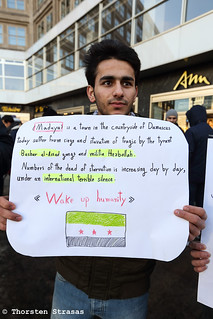 Madayat is a town in the countryside of Damascus
today suffer from siege and starvation of tragic by the tyrant
Bashar al-Assad gangs and militia Hezbollah.
Numbers of the dead of starvation is increasing, day by day,
under an international terrible silence.
« Wake up humanity »
© Thorsten Strasas